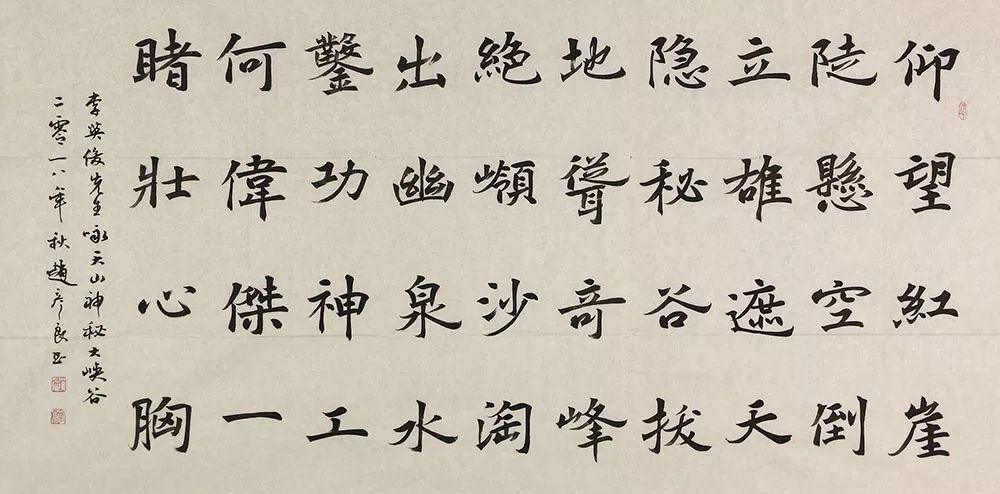 仰望紅崖
陡懸空倒
立雄遮天
隐秘谷拔
地聳奇峰
絶嶺沙淘
出幽泉水
鑿功神工
何偉傑一
睹壯心胸
李英俊先生咏天山神秘大峡谷
二零一八年秋趙彦良书